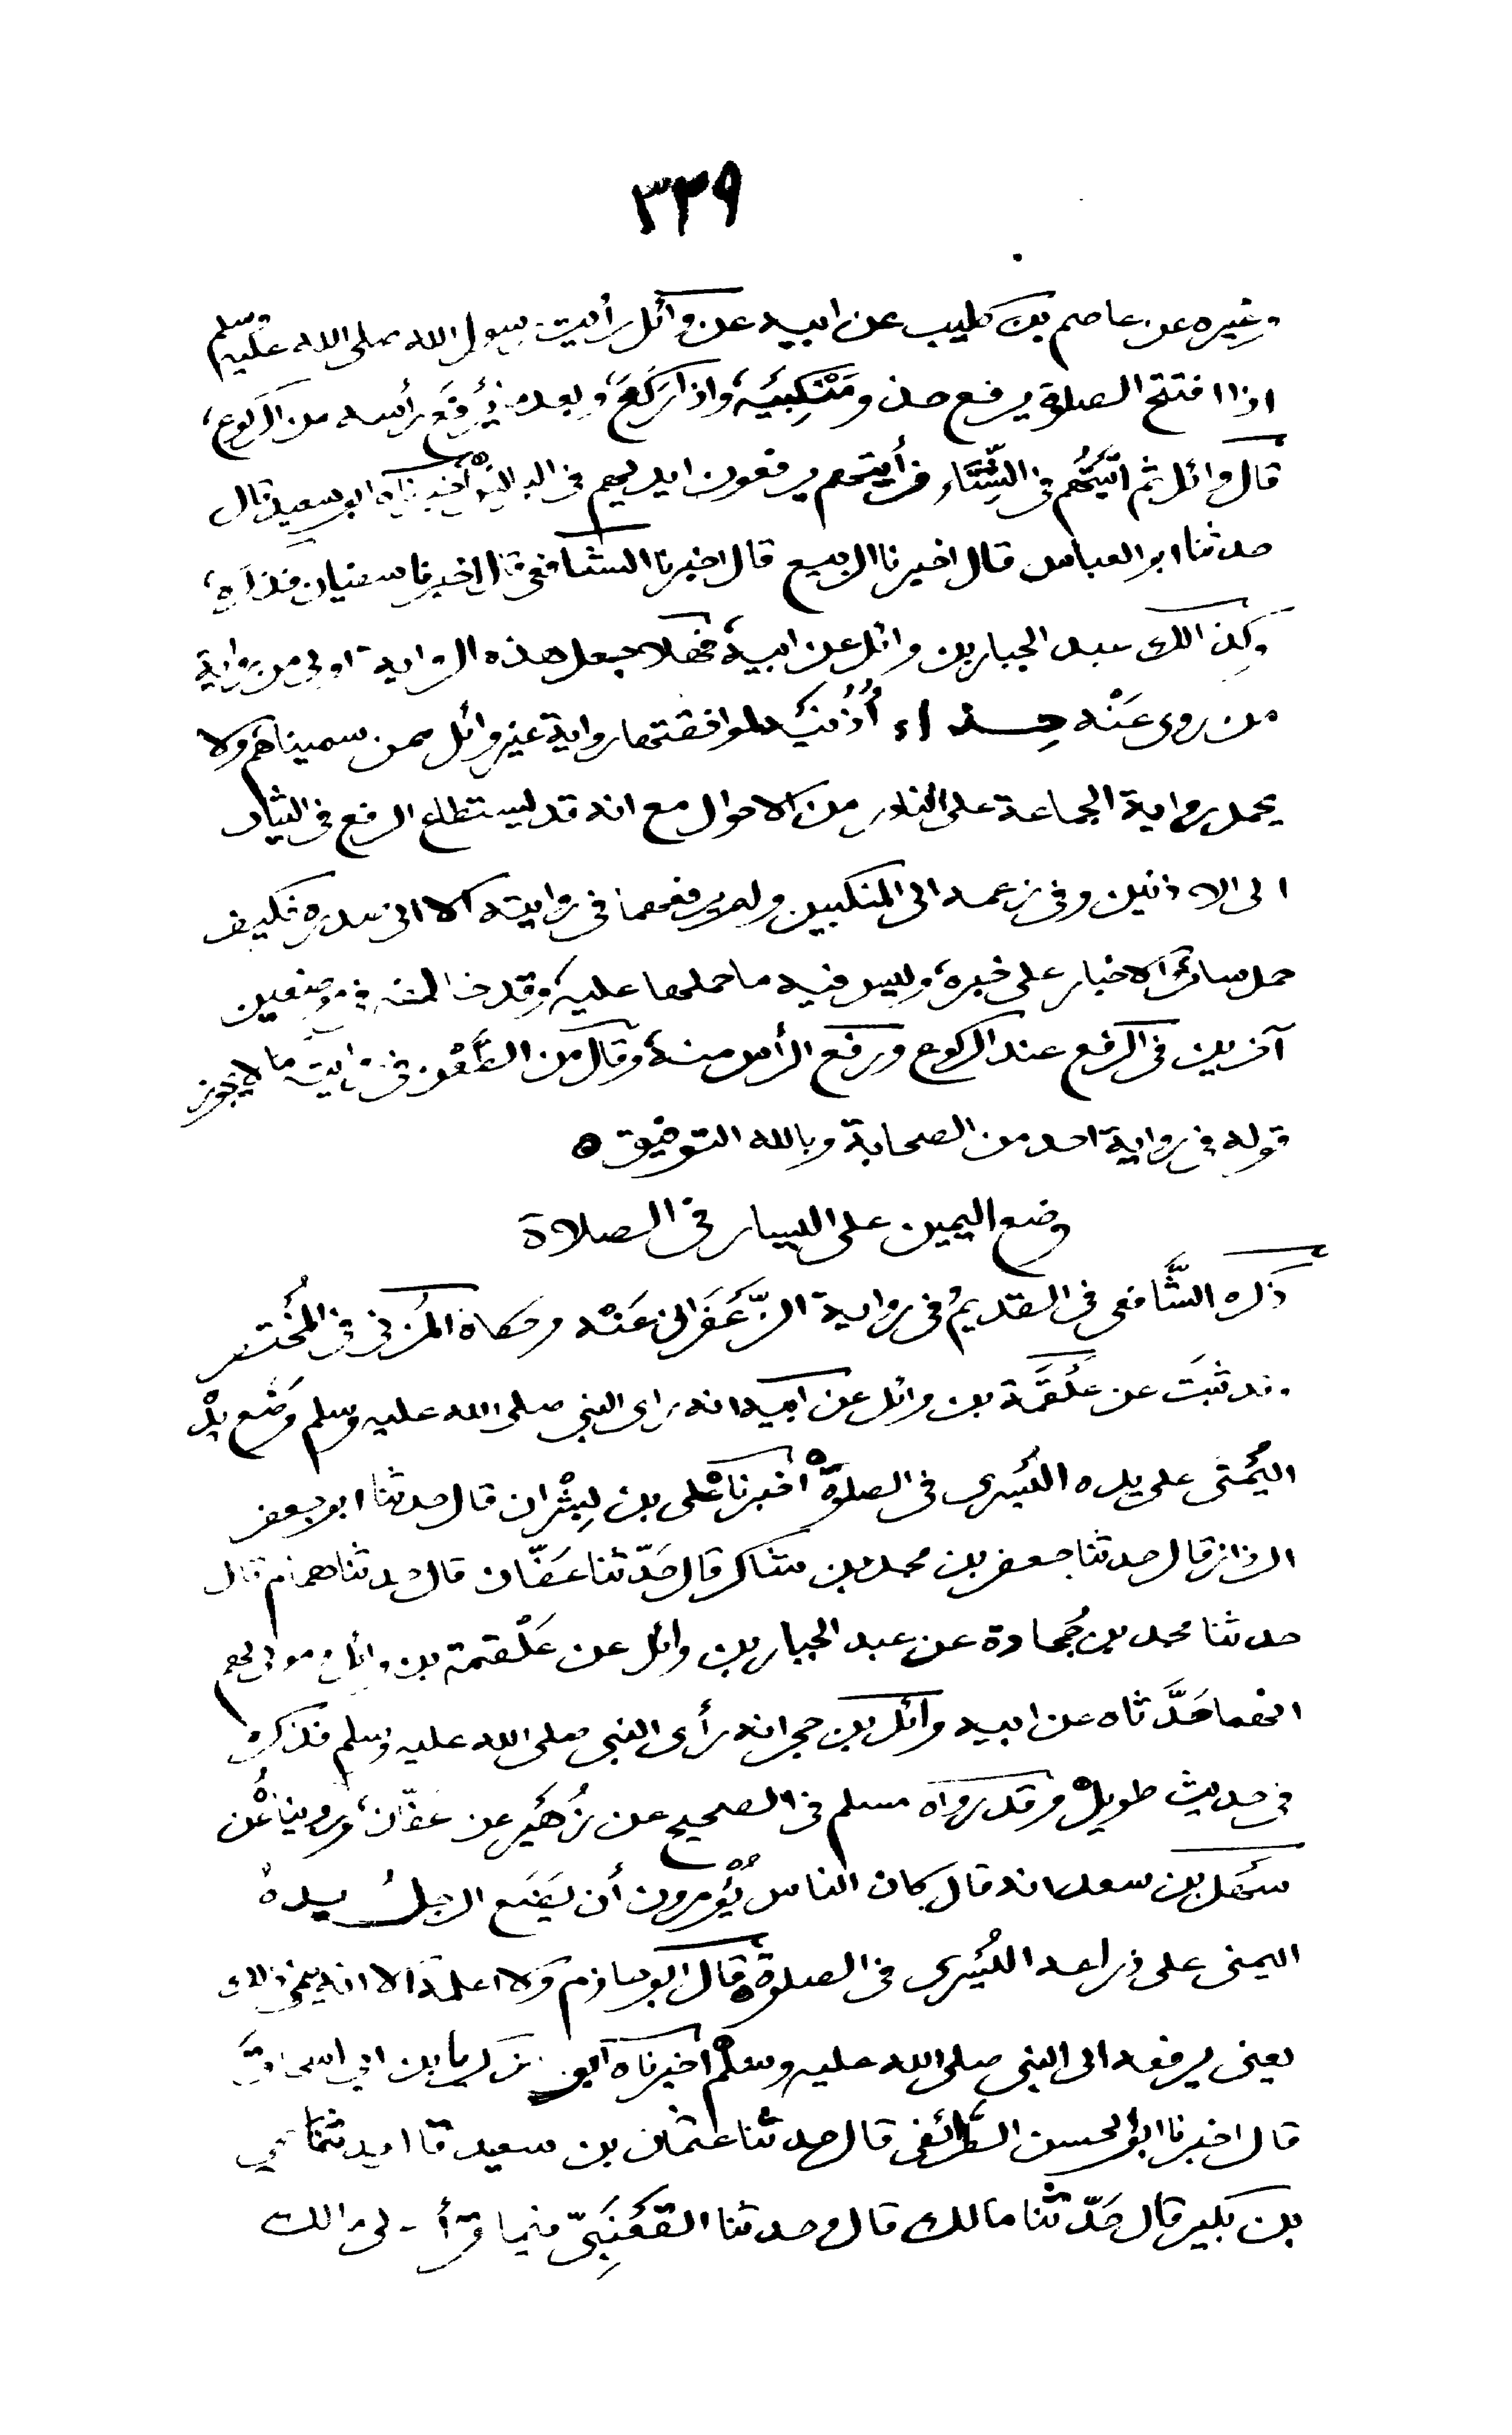 ٣٣٩
وغيره عن عاصم بن كليب عن ابيه عن وائل رأيت رسول الله صلى الله عليه وسلم
اذا افتتح الصلوة يرفع حذو مَنْكِبَيْه، واذا رَكَعَ، وبعد يَرْفَعُ رأسه من الركوع،
قال وائل ثم اتيتُهُم في الشِّتَاء فرأيتهم يرفعون ايديهم في البرانس اخبرناه ابو سعيد قال
حدثنا ابو العباس قال اخبرنا الربيع قال اخبرنا الشافعي قال اخبرنا سفيان فذكره،
وكذالك عبد الجبار بن وائل عن ابيه، فهلا جعل هذه الرواية اولى من رواية
من روى عَنْه حِذاء أُذُنَيْه لموافقتها رواية غير وائل ممن سميناهم ولا
يحمل رواية الجماعة على النادر من الاحوال مع انه قد يستطاع الرفع في الثياب
الى الاذنين وفي زعمه الى المنكبين ولم يرفعهما في روايته الا الى صدره فكيف
حمل سائر الاخبار على خبره، وليس فيه ما حملها عليه، وقد خالفه في موضعين
آخرين في الرفع عند الركوع ورفع الرأس منه، وقال من الطَّعْن في روايته ما لا يجوز
قوله في رواية احد من الصحابة وبالله التوفيق ٥
وضع اليمين على اليسار في الصلاة
ذكره الشَّافعي في القديم في رواية الزَّعْفَراني عَنْه وحكاه المُزني في المُختصر
وقد ثبَتَ عن عَلْقَمَة بن وائل عن ابيه انه راى النبي صلى الله عليه وسلم وَضَع يده
اليُمنى على يده اليُسرى في الصلوة اخبرنا علي بن بِشْران قال حدثنا ابو جعفر
الرزاز قال حدثنا جعفر بن محمد بن شاكر قال حَدّثنا عَفّان قال حدثنا همام قال
حدثنا محمد بن جُحادة عن عبد الجبار بن وائل عن عَلْقمة بن وائل ومولى لهم
انهما حَدَّثاه عن ابيه وائل بن حجر انه رأى النبي صلى الله عليه وسلم فذكره
في حديث طويل وقد رواه مسلم في الصحيح عن زُهَيْر عن عَفّان، وروينا عن
سَهل بن سعد انه قال كان الناس يُؤمرون أن يَضَع الرجلُ يدهُ
اليمنى على ذراعه اليُسرى في الصلوة قال ابو حازم ولا اعلمه الا انه ينمي ذلك
يعني يرفعه الى النبي صلى الله عليه وسلم اخبرناه ابو زكريا بن ابي اسحاق
قال اخبرنا ابو الحسن الطَّرائفي قال حدثنا عثمان بن سعيد قال حدثنا يحيى
بن بكير قال حَدّثنا مالك قال وحدثنا القَعْنَبِيّ فيما قرأ على مالك